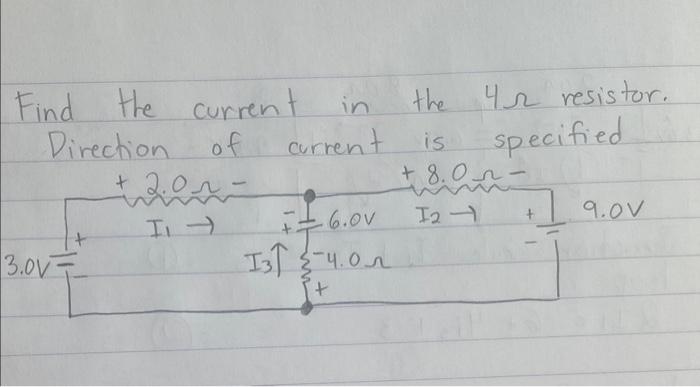 Find the current in the 4Ω resistor.
Direction of current is specified
+ 2.0Ω - + 8.0Ω -
I₁ → - + 6.0V I₂ → + - 9.0V
3.0V + - I₃↑ - 4.0Ω
+